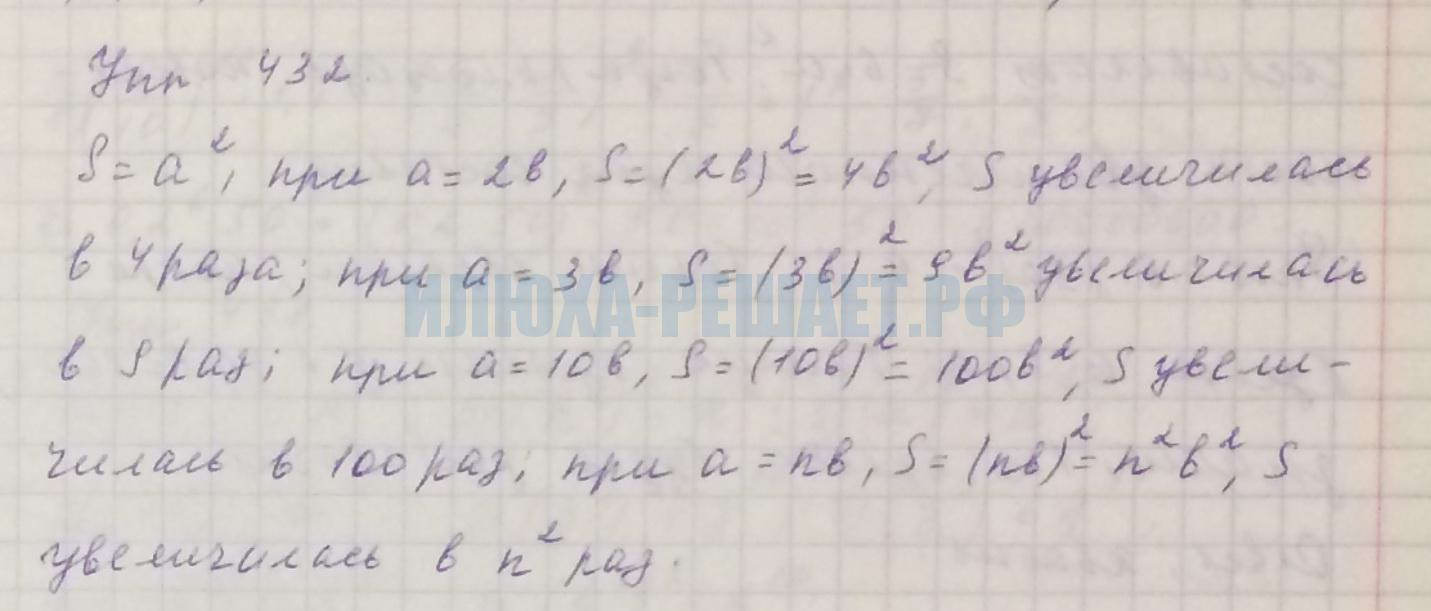 Упр 432.
S = a², при a = 2в, S = (2в)² = 4в², S увеличилась
в 4 раза; при a = 3в, S = (3в)² = 9в² увеличилась
ИЛЮХА-РЕШАЕТ.РФ
в 9 раз; при a = 10в, S = (10в)² = 100в², S увели-
чилась в 100 раз; при a = nв, S = (nв)² = n²в², S
увеличилась в n² раз.